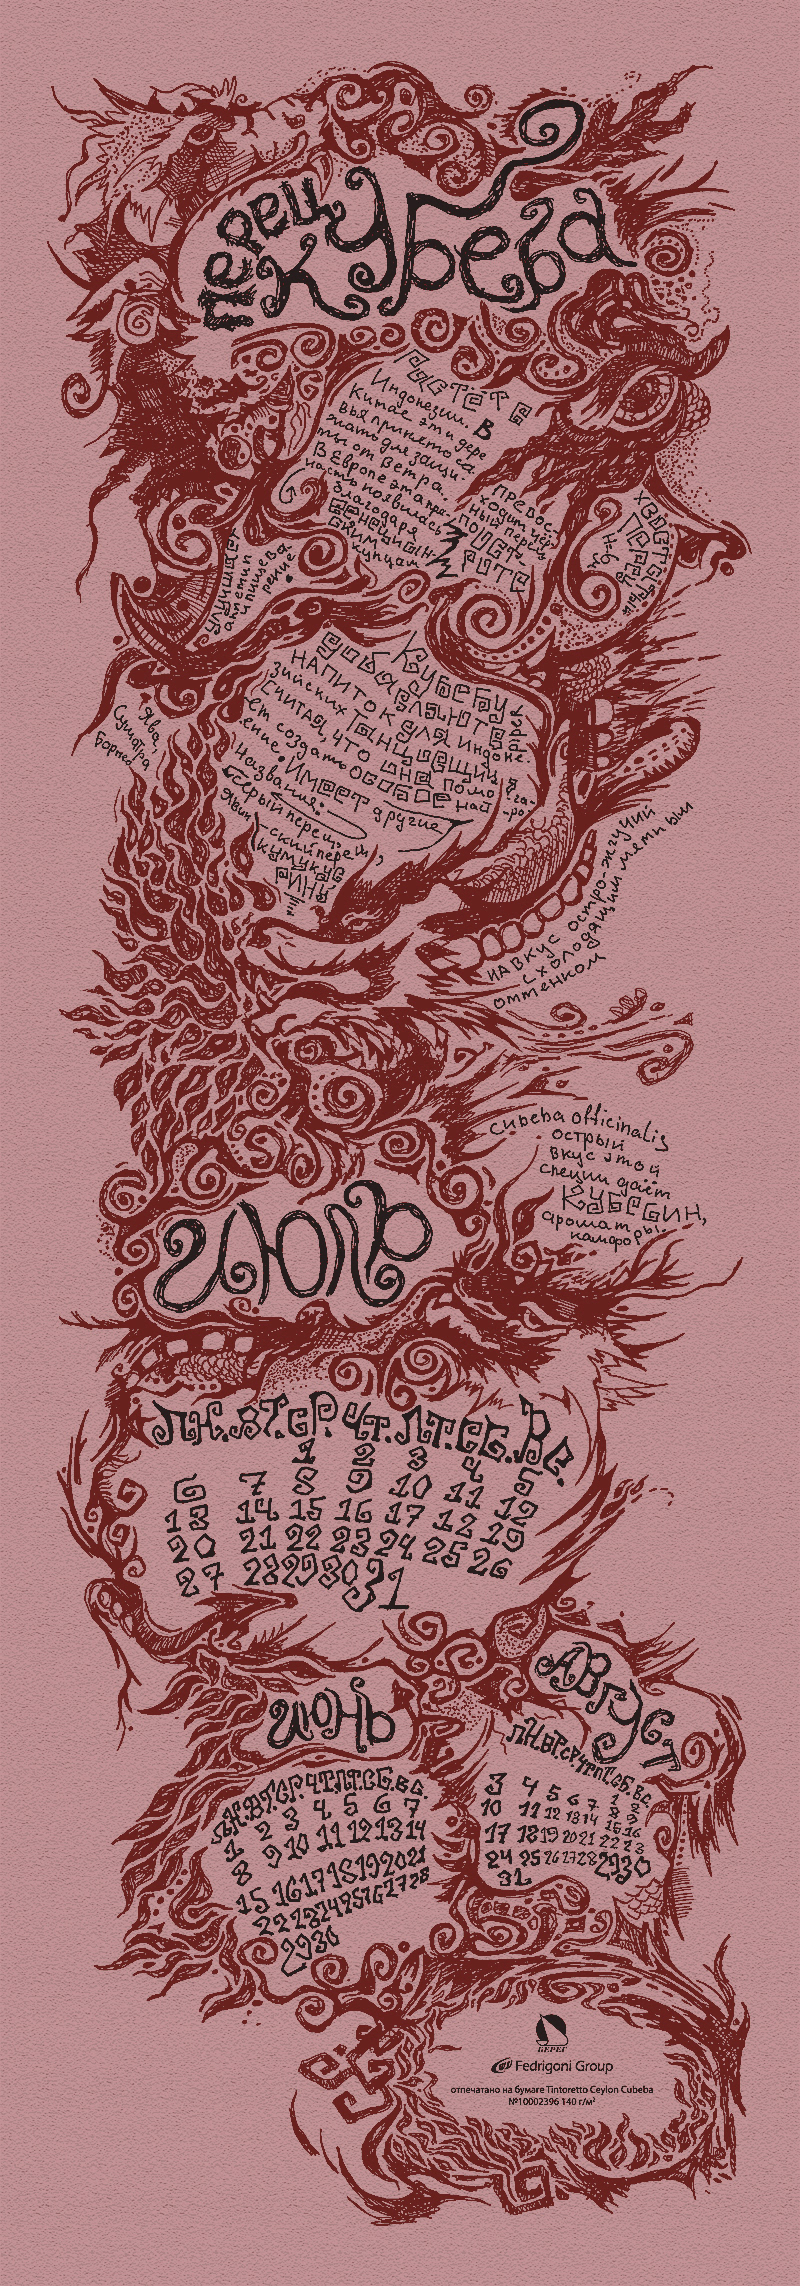 перец
кубеба
Растёт в
Индонезии. В
Китае эти дере
вья принято са
жать для защи-
ты от ветра.
В Европе эта пря-
ность появилась
благодаря
венециан
ским
купцам
Превос-
ходит чёр-
ный перец
по остроте
улучшает
аппетит
и пищева
рение
Ява,
Суматра
Борнео
Кубебу
добавляют в
напиток для индоне-
зийских танцовщиц,
считая, что она помо
ет создать особое
Имеет другие
названия:
Серый перец,
Яван-ский перец,
кумукус
на вкус остро-жгучий
с холодящим мятным
оттенком
cubeba officinalis
острый
вкус этой
специи даёт
кубебин,
ароматы.
камфоры
июль
пн. вт. ср. чт. пт. сб. вс.
1 2 3 4 5
6 7 8 9 10 11 12
13 14 15 16 17 12 19
20 21 22 23 24 25 26
27 28 29 30 31
июнь
пн. вт. ср. чт. пт. сб. вс.
1 2 3 4 5 6 7
8 9 10 11 12 13 14
15 16 17 18 19 20 21
22 28 24 25 26 27 28
29 30
Август
пн вт. ср. чт. пт. сб. вс.
1 2
3 4 5 6 7 8 9
10 11 12 13 14 15 16
17 18 19 20 21 22 23
24 25 26 27 28 29 30
31
БЕРЕГ
Fedrigoni Group
отпечатано на бумаге Tintoretto Ceylon Cubeba
№10002396 140 г/м²